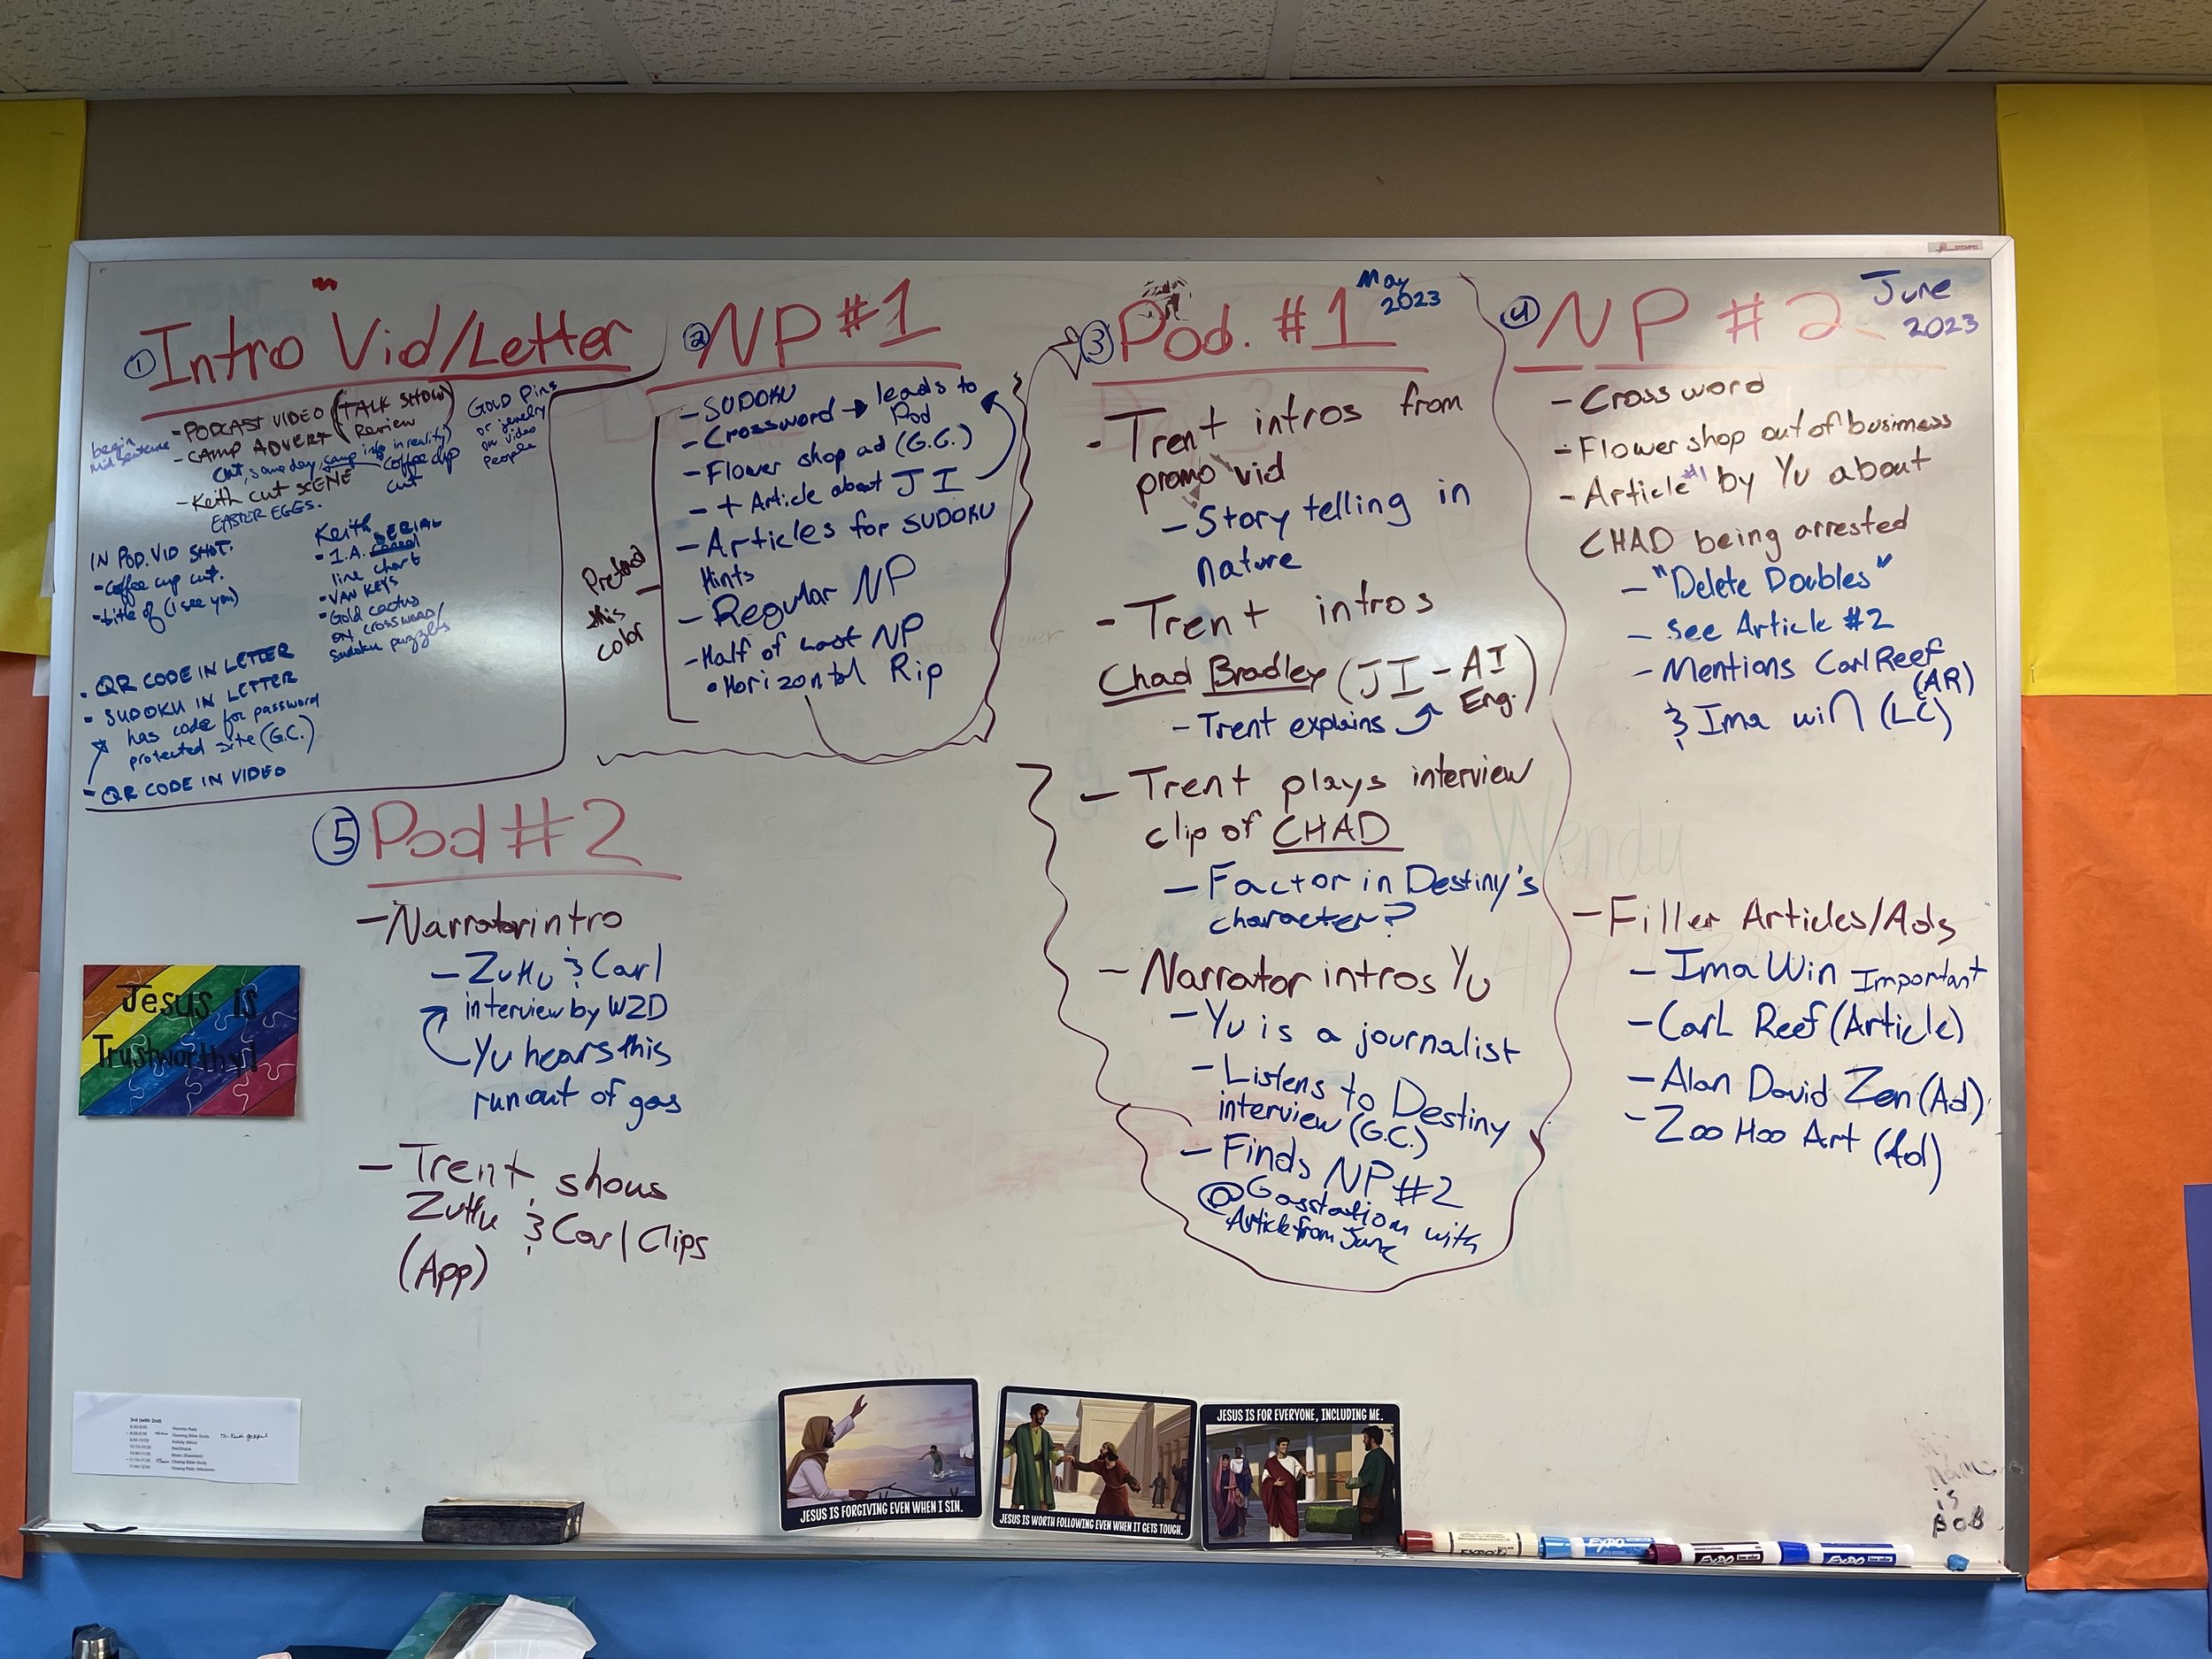 ① Intro Vid/Letter
begin
mid sentence
- PODCAST VIDEO (TALK SHOW)
- CAMP ADVERT (Review
cut, same day, camp info in reality)
- Keith cut SCENE
coffee cup
cut
EASTER EGGS.
GOLD Pins
or jewelry
on video
people
IN POD. VID SHOT.
- coffee cup cut.
- title of (I see you)
Keith
- I.A. SERIAL
line chart
- VAN KEYS
- Gold cactus
on crossword/
sudoku puzzles
- QR CODE IN LETTER
- SUDOKU IN LETTER
has code for password
protected site (G.C.)
- QR CODE IN VIDEO
② NP #1
Pretend
this
color
- SUDOKU
- Crossword → leads to
Pod
- Flower shop ad (G.G.)
- + Article about JI
- Articles for SUDOKU
Hints
- Regular NP
- Half of Last NP
• Horizontal Rip
③ Pod. #1
May
2023
- Trent intros from
promo vid
- Story telling in
nature
- Trent intros
Chad Bradley (JI - AI
Eng.)
- Trent explains
- Trent plays interview
clip of CHAD
- Factor in Destiny's
character?
- Narrator intros Yu
- Yu is a journalist
- Listens to Destiny
interview (G.C.)
- Finds NP #2
@ Gasstation with
Article from June
④ NP #2
June
2023
- Cross word
- Flower shop out of business
- Article #1 by Yu about
CHAD being arrested
- "Delete Doubles"
- see Article #2
- Mentions Carl Reef
(AR)
& Ima win (LC)
- Filler Articles/Ads
- Ima Win Important
- Carl Reef (Article)
- Alan David Zen (Ad)
- Zoo Hoo Art (Ad)
⑤ Pod #2
- Narrator intro
- ZuHu & Carl
interview by WZD
Yu hears this
run out of gas
- Trent shows
ZuHu & Carl Clips
(App)
Wendy
Jesus Is
Trustworthy!
3rd (with 2nd)
JESUS IS FORGIVING EVEN WHEN I SIN.
JESUS IS WORTH FOLLOWING EVEN WHEN IT GETS TOUGH.
JESUS IS FOR EVERYONE, INCLUDING ME.
name
is
BOB
EXPO
EXPO
EXPO
EXPO